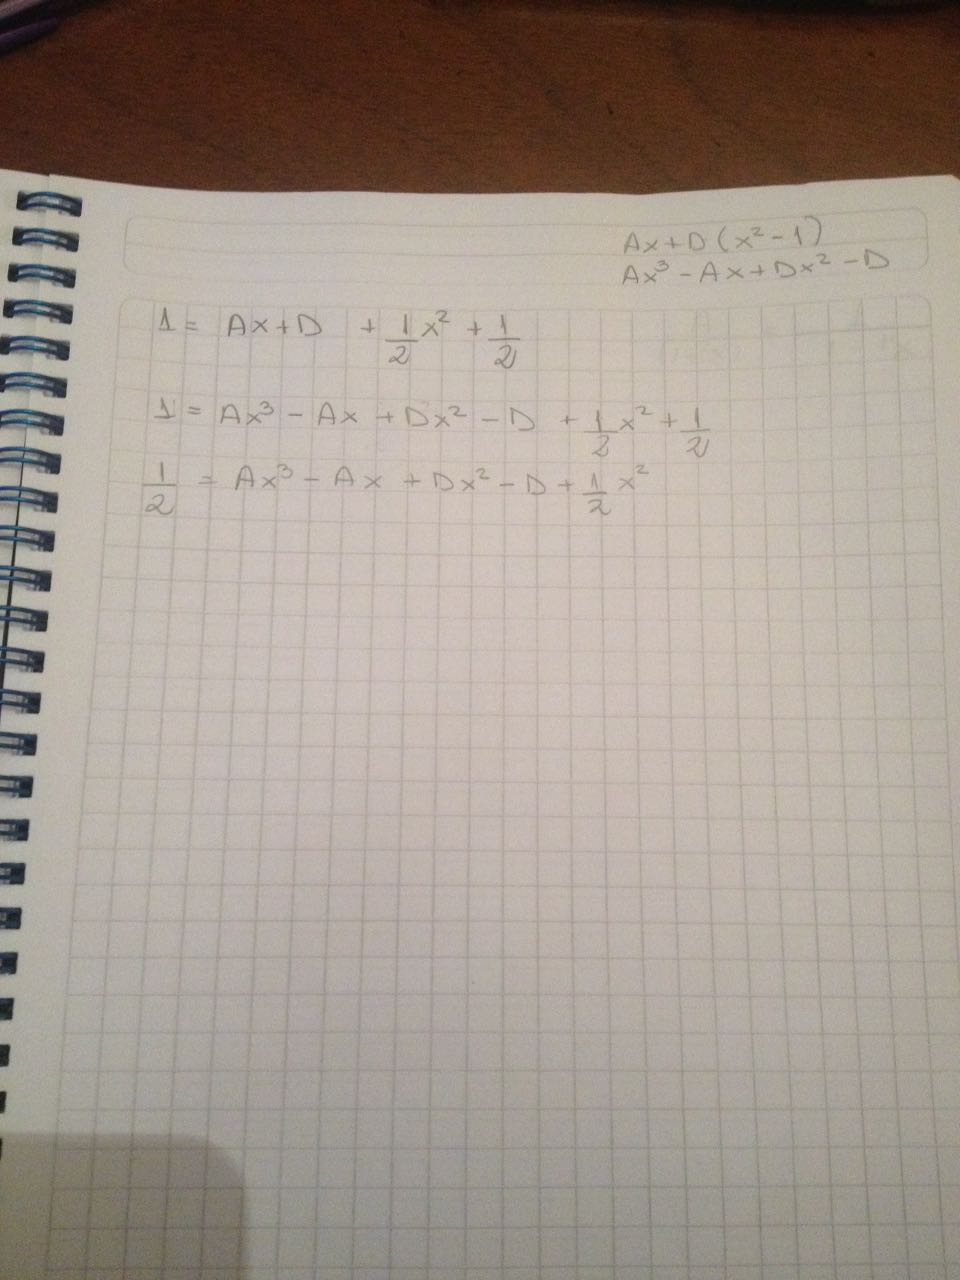 Ax+D (x² - 1)
Ax³ - Ax + Dx² - D
1 = Ax+D + 1/2 x² + 1/2
1 = Ax³ - Ax + Dx² - D + 1/2 x² + 1/2
1/2 = Ax³ - Ax + Dx² - D + 1/2 x²